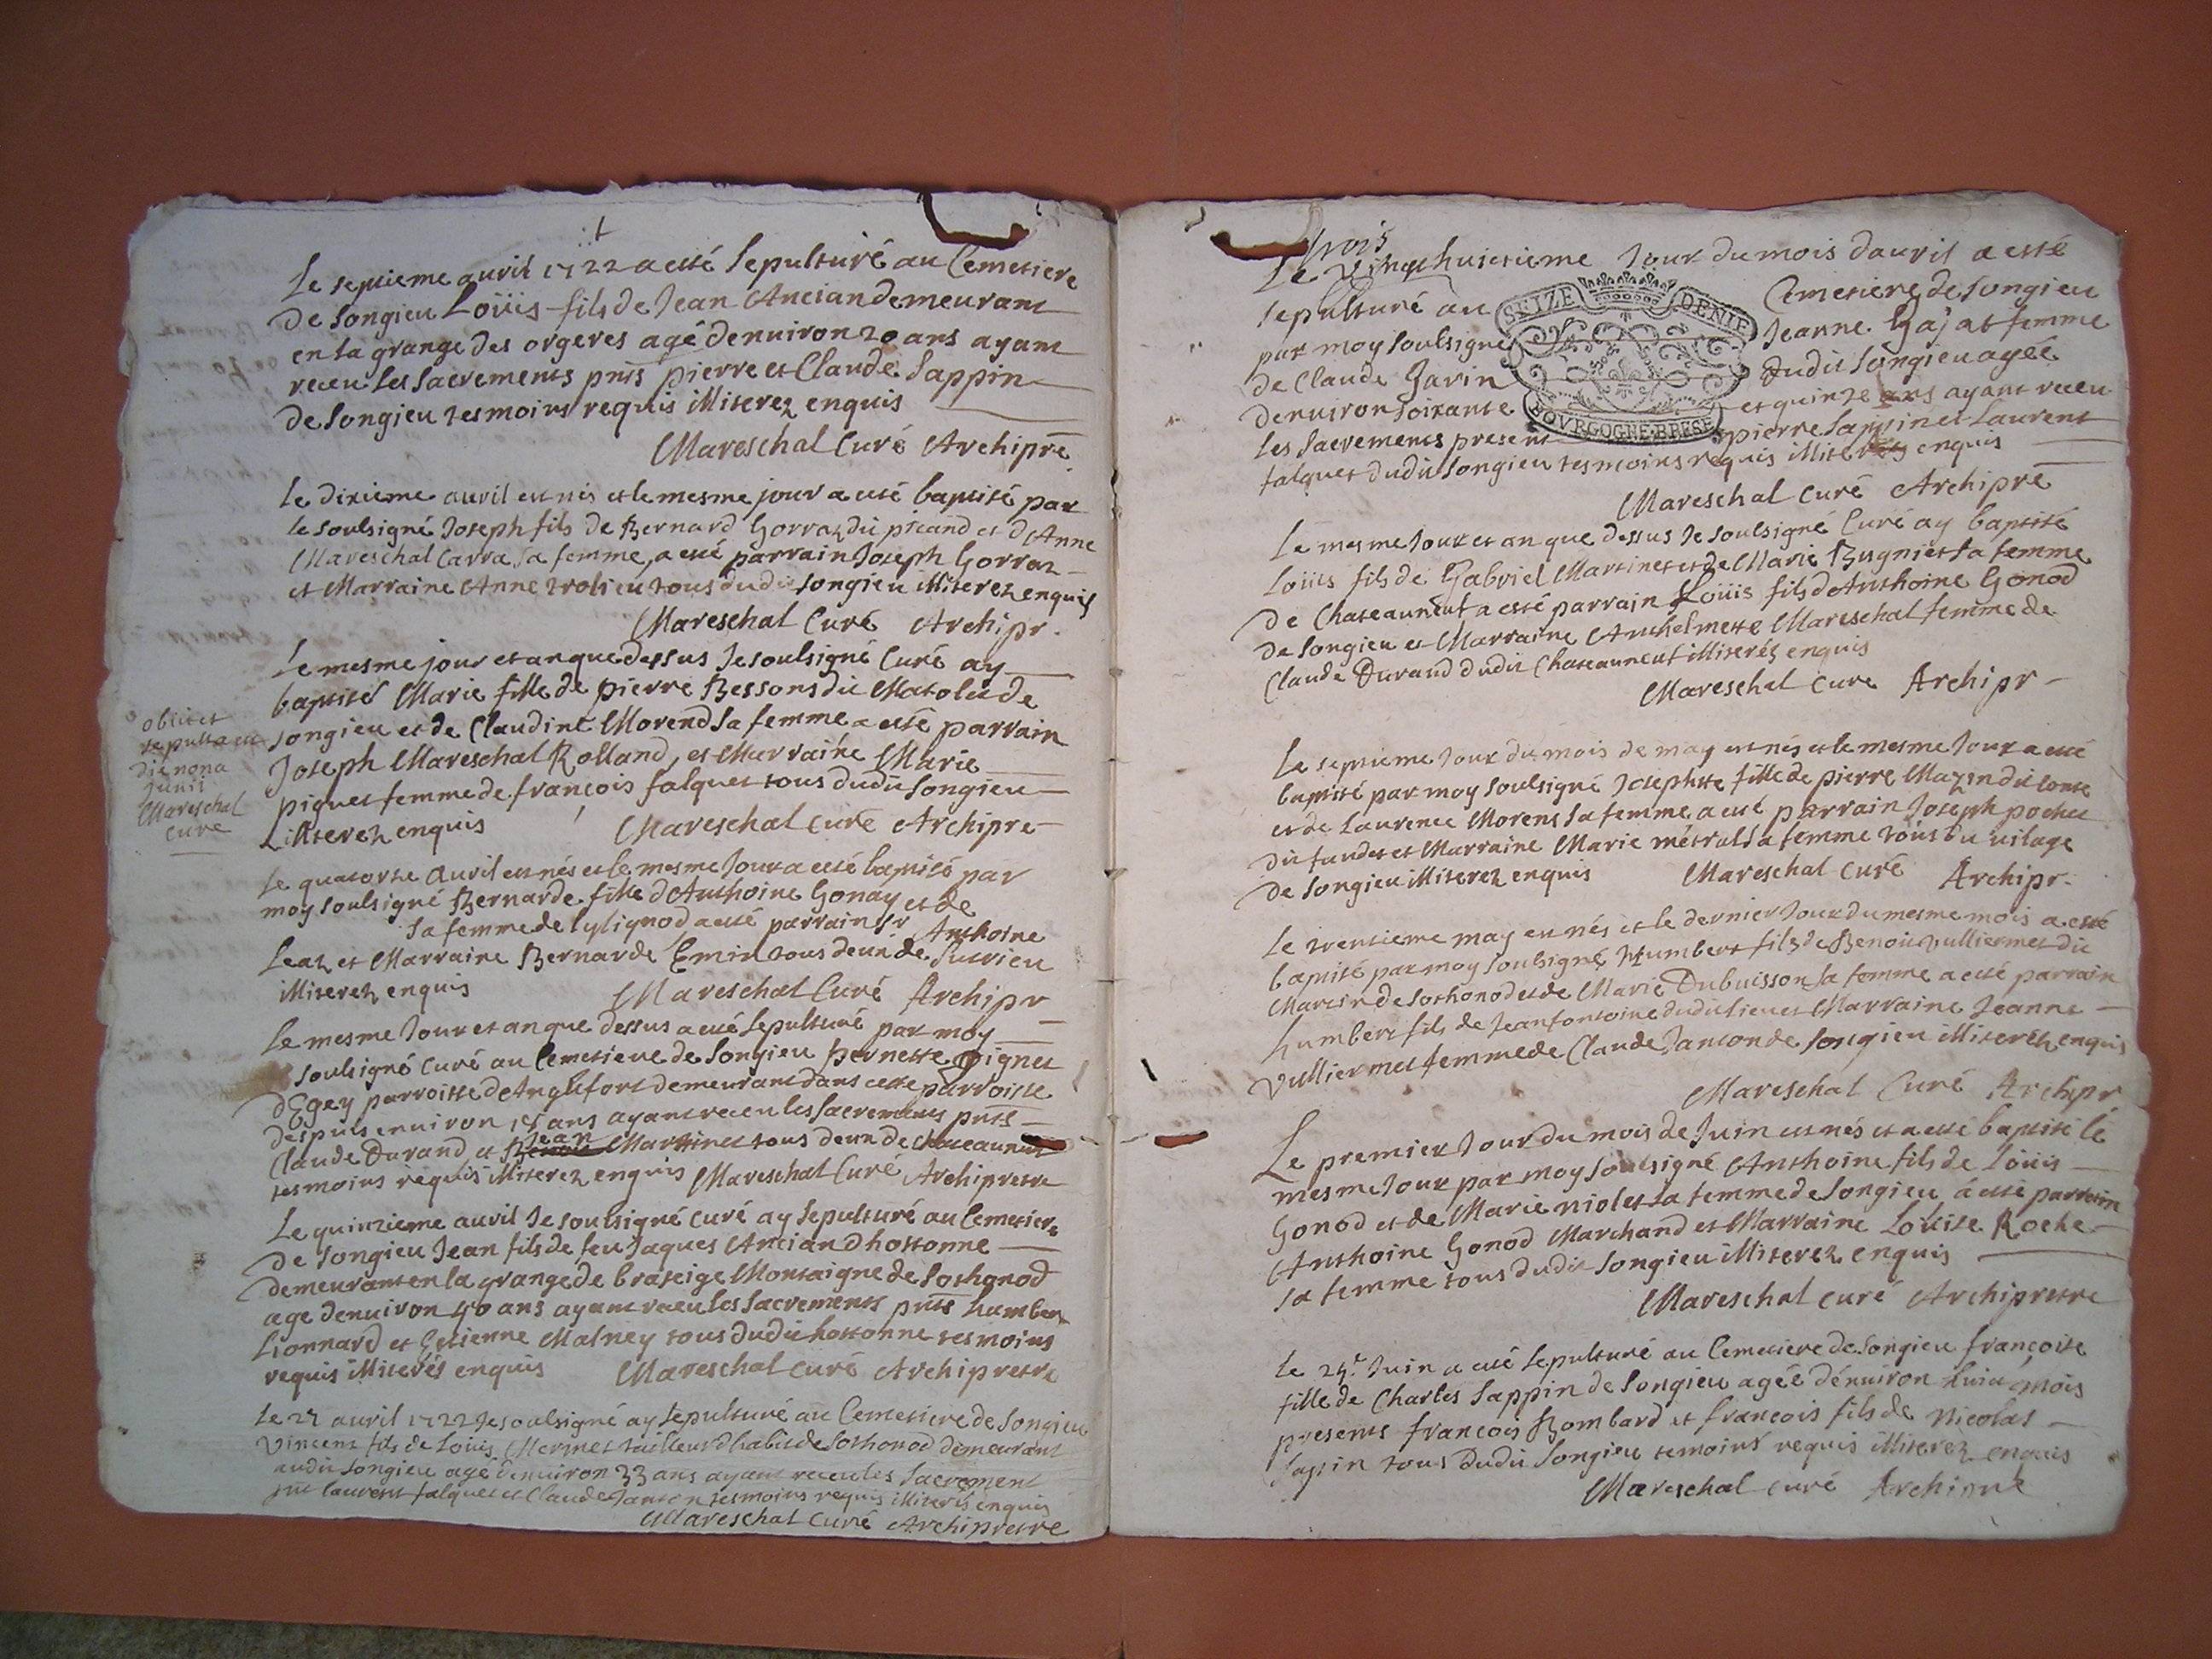 Le septieme auril 1722 a esté sepulturé au Cemetiere
de Songieu Loüis fils de Jean Ancian demeurant
en la grange des orgeres agé denuiron 20 ans ayant
receu les sacrements pnts pierre et Claude Sappin
de Songieu tesmoins requis illiterez enquis
Mareschal Curé Archipre
Le dixieme auril est nés et le mesme jour a esté baptisé par
le soulsigné Joseph fils de Bernard Gorraz dit picand et d'Anne
Mareschal Carra sa femme, a esté parrain Joseph Gorraz
et Marraine Anne trolieu tous dudit songieu illiterez enquis
Mareschal Curé Archipr.
Le mesme jour et an que dessus Je soulsigné Curé ay
baptisé Marie fille de pierre Bessons dit Matolet de
songieu et de Claudine Morend sa femme a esté parrain
Joseph Mareschal Rolland, et Marraine Marie
piquet femme de françois falquet tous dudit Songieu
illiterez enquis Mareschal curé Archipre
obiit et
sepulta est
die nona
Junii
Mareschal
curé
Le quatorze auril est nés et le mesme Jour a esté baptisé par
moy soulsigné Bernarde fille d'Anthoine Gonay et de
sa femme de lylignod a esté parrain Sr Anthoine
Leaz et Marraine Bernarde Emin tous deux de Sutrieu
illiterez enquis Mareschal Curé Archipr
Le mesme Jour et an que dessus a esté sepulturé par moy
soulsigné curé au Cemetiere de Songieu pernette pignet
d'Egey parroisse de Anglefort demeurant dans cette parroisse
despuis enuiron 15 ans ayant receu les sacrements pnts
Claude Durand et Jean Martinet tous deux de chateauneuf
tesmoins requis illiterez enquis Mareschal Curé Archipretre
Le quinzieme auril Je soulsigné curé ay sepulturé au Cemetiere
de Songieu Jean fils de feu Jaques Ancian d'hostonne
demeurant en la grange de braseige Montaigne de Sothonod
age denuiron 40 ans ayant receu les sacrements pnts humbert
Lionnard et Etienne Malney tous dudit hostonne tesmoins
requis illiterés enquis Mareschal curé Archipretre
Le 27 auril 1722 Je soulsigné ay sepulturé au Cemetiere de Songieu
Vincent fils de Loüis Mermet tailleur d'habit de Sothonod demeurant
audit Songieu agé denuiron 33 ans ayant receu les sacrement
pnt laurent falquet et Claude Janton tesmoins requis illiterés enquis
Mareschal Curé Archipretre
trois
Le vingt huictieme Jour du mois dauril a esté
sepulturé au Cemetiere de Songieu
par moy soulsigné Jeanne Gajat femme
de Claude Garin dudit Songieu agée
denuiron soixante et quinze ans ayant receu
les sacrements present pierre Sappin et Laurent
falquet dudit Songieu tesmoins requis illiterés enquis
Mareschal curé Archipré
SEIZE DENIE
BOVRGOGNE·BRESE
Le mesme Jour et an que dessus Je soulsigné Curé ay baptisé
Loüis fils de Gabriel Martinet et de Marie Bugniet sa femme
de Chateauneuf a esté parrain Loüis fils d'Anthoine Gonod
de Songieu et Marraine Anthelmette Mareschal femme de
Claude Durand dudit Chateauneuf illiteréz enquis
Mareschal cure Archipr
Le septieme Jour du mois de may est nés et le mesme Jour a esté
baptisé par moy soulsigné Josephte fille de pierre Mazin dit conte
et de Laurence Morens sa femme a esté parrain Joseph pochet
dit fandet et Marraine Marie métral sa femme tous du uilage
de Songieu illiterez enquis Mareschal Curé Archipr.
Le trentieme may est nés et le dernier Jour du mesme mois a esté
baptisé par moy soulsigné humbert fils de Benoit Vulliermet dit
Martin de Sothonod et de Marie Dubuisson sa femme a esté parrain
humbert fils de Jean fontoine dudit lieu et Marraine Jeanne
Vulliermet femme de Claude Janton de Songieu illiterez enquis
Mareschal Curé Archipr
Le premier Jour du mois de Juin est nés et a esté baptisé le
mesme Jour par moy soulsigné Anthoine fils de Loüis
Gonod et de Marie niolet sa femme de Songieu a esté parrain
Anthoine Gonod Marchand et Marraine Loüise Roche
sa femme tous dudit Songieu illiterez enquis
Mareschal curé Archipretre
Le 25e Juin a esté sepulturé au Cemetiere de Songieu françoise
fille de Charles Sappin de Songieu agée dénuiron huict mois
presents francois Bombard et francois fils de Nicolas
Sappin tous dudit Songieu temoins requis illiterez enquis
Mareschal curé Archipré